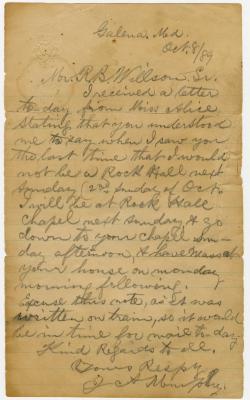 Galena Md.
Oct. 8/89
Mr. R. B. Willson, Sr.
I received a letter
to day from Miss Alice
stating that you understood
me to say when I saw you
the last time that I would
not be a Rock Hall next
Sunday (2nd Sunday of Oct.
I will be at Rock Hall
chapel next sunday & go
down to your chapel Sun-
day afternoon, & have Mass at
your house on monday
morning following.
Excuse this note, as it was
written on train, so it would
be in time for mail to-day.
Kind Regards to all.
Yours Respy
J. A.